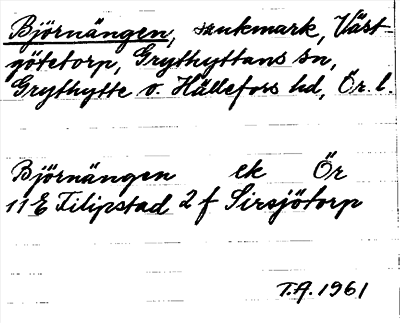 Björnängen, sankmark, Väst-
götetorp, Grythyttans sn,
Grythytte o. Hällefors hd, Ör. l.
Björnängen ek Ör
11 E Filipstad 2 f Sirsjötorp
T.A. 1961